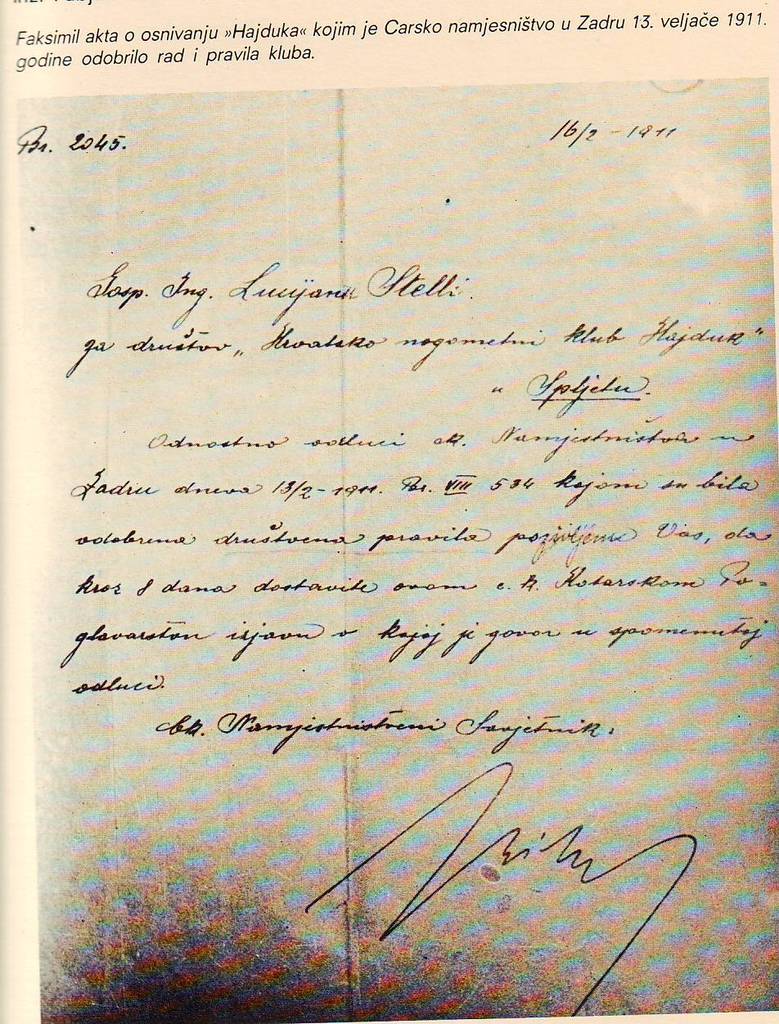 Faksimil akta o osnivanju »Hajduka« kojim je Carsko namjesništvo u Zadru 13. veljače 1911.
godine odobrilo rad i pravila kluba.
Br. 2045.
16/2 - 1911
Gosp. Ing. Lucijanu Stelli.
za društvo „Hrvatsko nogometni klub Hajduk"
u Spljetu.
Odnostno odluci ck. Namjestništva u
Zadru dneva 13/2-1911. Br. VIII 534 kojom su bila
odobrena društvena pravila pozivljem Vas, da
kroz 8 dana dostavite ovom c. k. Kotarskom Po=
glavarstvu izjavu o kojoj je govor u spomenutoj
odluci.
Ck. Namjestništveni Savjetnik: